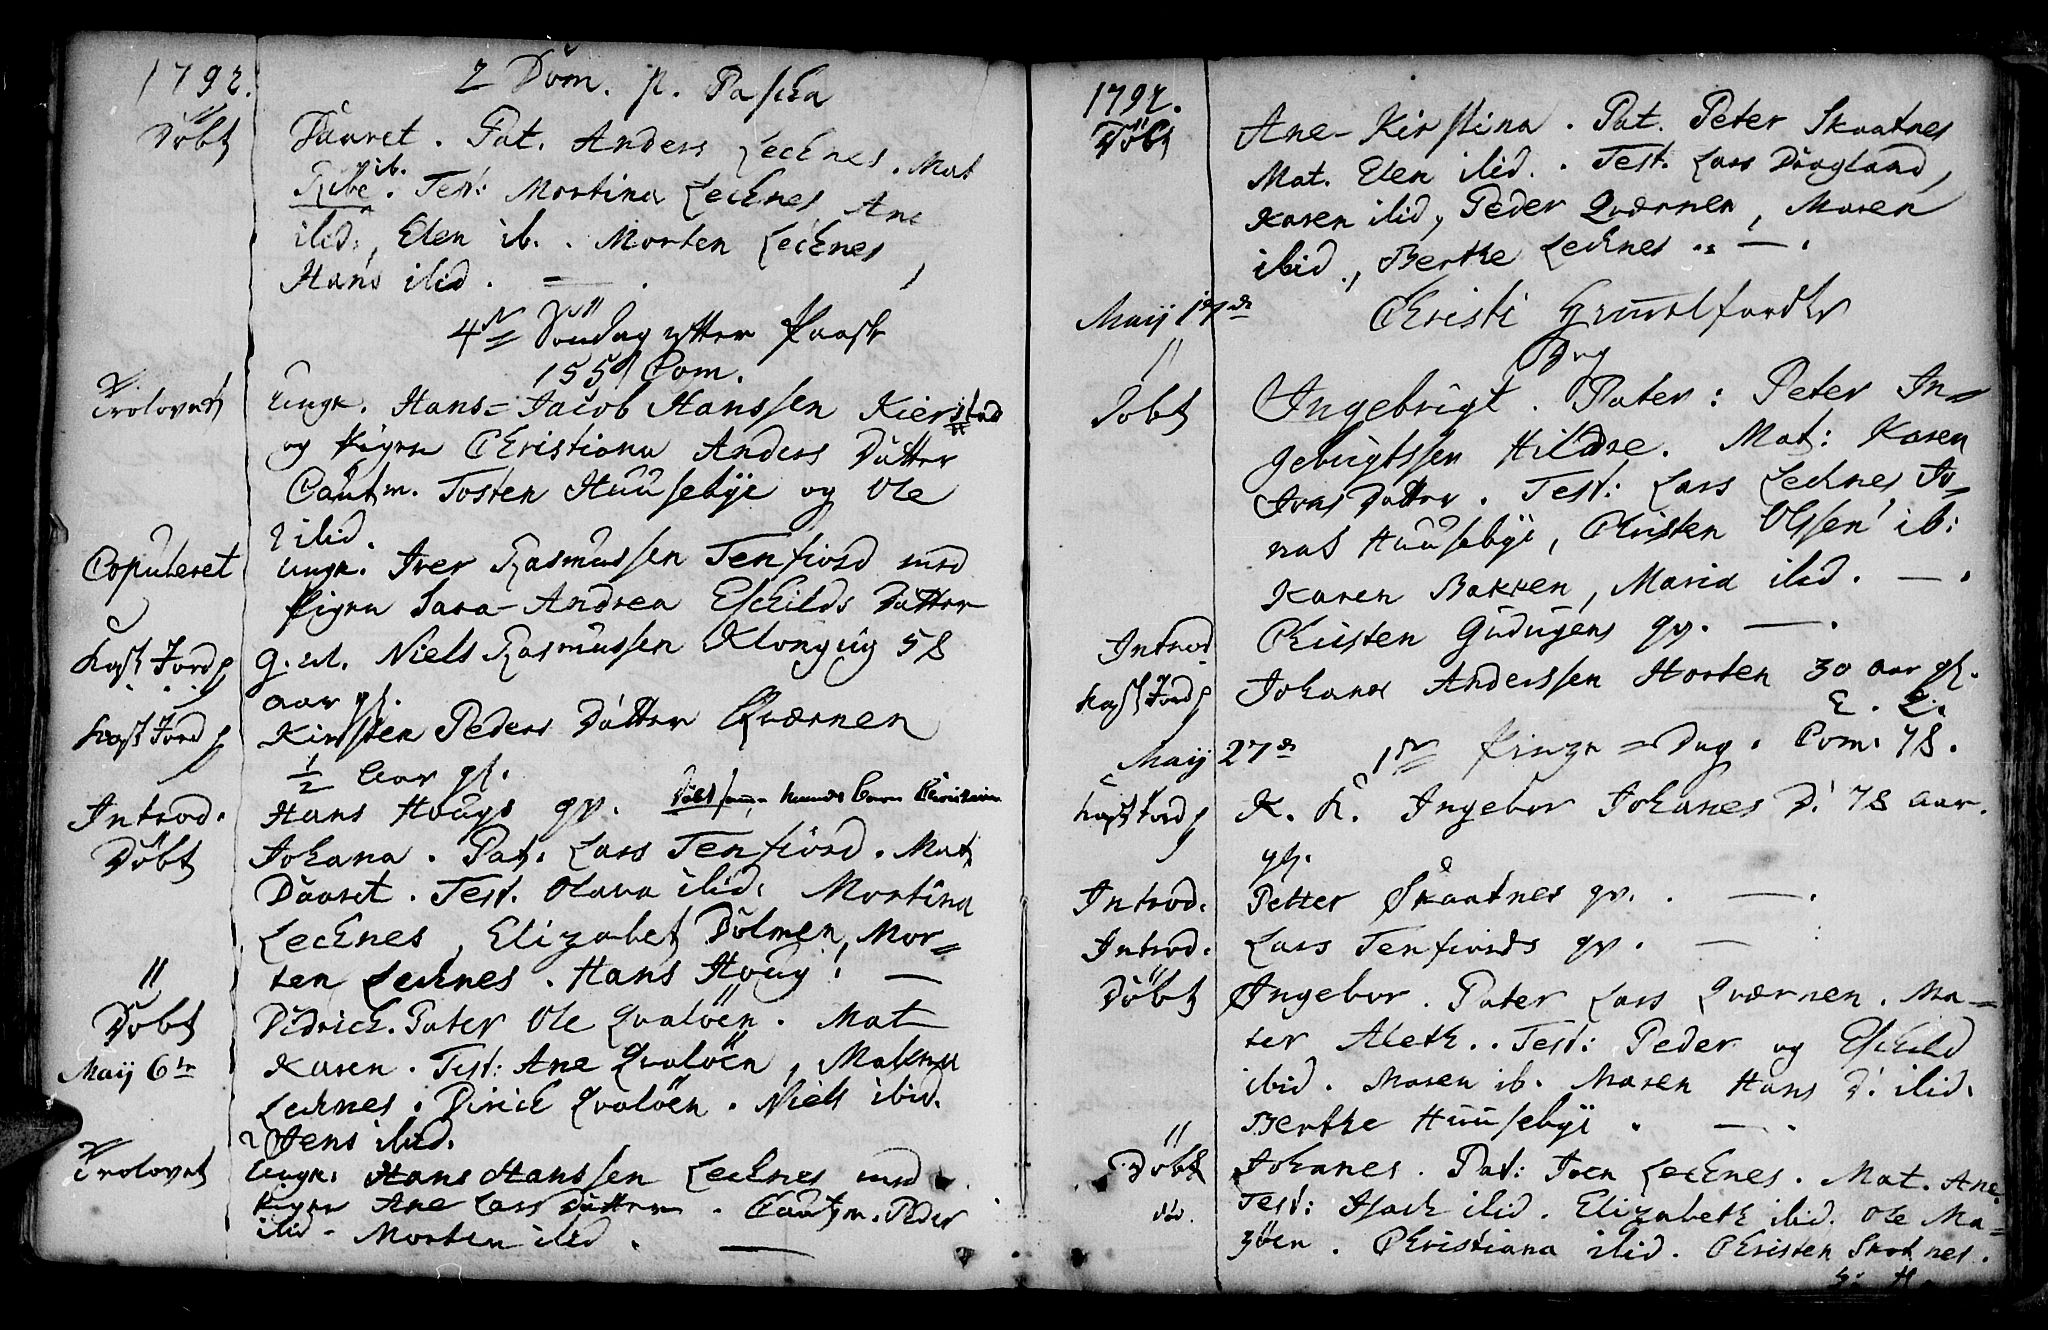 1792.
2 Dom. p. Pascha
Döbt Daaret. Pat. Anders Lechnes. Mat
Ribe ib. Test: Mortina Lechnes, Ane
ibid, Elen ib. Morten Lechnes,
Hans ibid. —
4de Söndag efter Paask
155 Com.
Trolovet Ungk. Hans-Jacob Hanssen Kierstad
og Pigen Christiana Anders Datter
Cautm. Tosten Huusebye og Ole
ibid.
Copuleret Ungk. Iver Rasmussen Tenfiord med
Pigen Sara-Andrea Eschilds Datter
Kast Jord p G. M. Niels Rasmussen Klongnig 58
aar gl.
Kast Jord p Kirsten Peders Datter Qværnen
1/2 Aar gl.
Introd. Hans Hougs qv. Döbt hands barn
Döbt Johana. Pat. Lars Tenfiord. Mat
Daaret. Test. Olava ibid. Mortina
Lechnes, Elizabet Dolmen, Mor-
ten Lechnes. Hans Houg. —
Döbt Didrich. Pater Ole Qvalöen. Mat
Maij 6te Karen. Test: Ane Qvalöen,
Lechnes. Dirich Qvalöen. Niels ibid.
Jens ibid.
Trolovet Ungk. Hans Hanssen Lechnes med
Pigen Ane Lars Datter. Cautm. Peder
ibid - Morten ibid. —
1792.
Döbt Ane-Kirstina. Pat. Peter Skaatnes
Mat. Elen ibid. Test. Lars Daagland,
Karen ibid, Peder Qværnen, Maren
ibid., Berthe Lechnes. —
Maij 17de Christi Himmelfarths
Dag
Döbt Ingebrigt. Pater: Peter In-
gebrigtssen Hildre. Mat: Karen
Ivers Datter. Test: Lars Lechnes Jo-
nas Huusebye, Christen Olssen ib:
Karen Bakken, Maria ibid. —
Introd Christen Gudugens qv. —
Kast Jord p Johanes Anderssen Horten 30 aar gl.
Maij 27de 1ste Pinze-Dag. Com. 78.
Kast Jord p K. L. Ingebor Johanes D. 78 Aar.
gl.
Introd. Petter Skaatnes qv. —
Introd. Lars Tenfiords qv. —
Döbt Ingebor. Pater Lars Qværnen. Ma-
ter Aleth. Test: Peder og Eschild
ibid. Maren ib. Maren Hans D. ibid.
Berthe Huusebye. —
Döbt Johanes. Pat: Iver Lechnes. Mat. Ane
Test: Isach ibid. Elizabeth ibid. Ole Ma-
göen. Christiana ibid. Christen Skotnes.